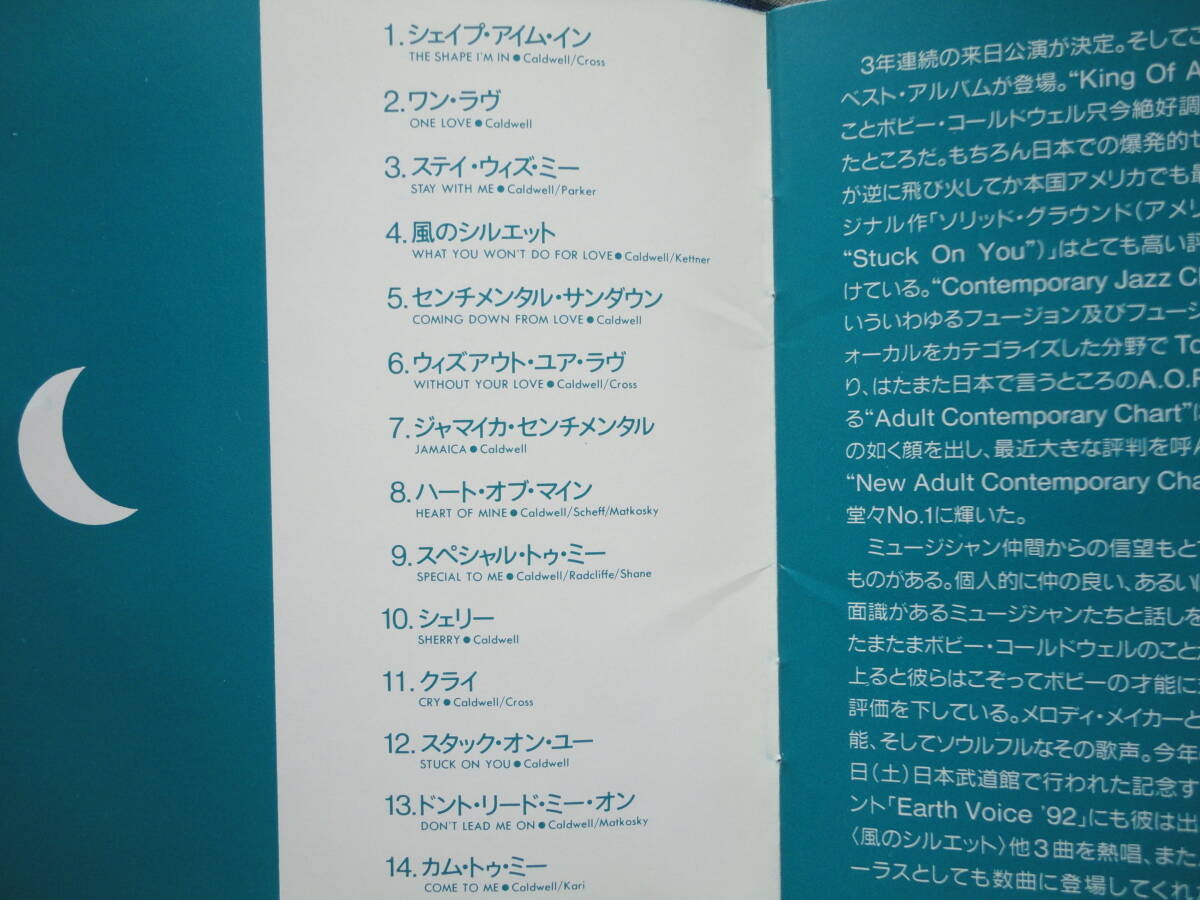 1. シェイプ・アイム・イン
THE SHAPE I'M IN●Caldwell/Cross
2. ワン・ラヴ
ONE LOVE●Caldwell
3. ステイ・ウィズ・ミー
STAY WITH ME●Caldwell/Parker
4. 風のシルエット
WHAT YOU WON'T DO FOR LOVE●Caldwell/Kettner
5. センチメンタル・サンダウン
COMING DOWN FROM LOVE●Caldwell
6. ウィズアウト・ユア・ラヴ
WITHOUT YOUR LOVE●Caldwell/Cross
7. ジャマイカ・センチメンタル
JAMAICA●Caldwell
8. ハート・オブ・マイン
HEART OF MINE●Caldwell/Scheff/Matkosky
9. スペシャル・トゥ・ミー
SPECIAL TO ME●Caldwell/Radcliffe/Shane
10. シェリー
SHERRY●Caldwell
11. クライ
CRY●Caldwell/Cross
12. スタック・オン・ユー
STUCK ON YOU●Caldwell
13. ドント・リード・ミー・オン
DON'T LEAD ME ON●Caldwell/Matkosky
14. カム・トゥ・ミー
COME TO ME●Caldwell/Kari
3年連続の来日公演が決定。そしてこ
ベスト・アルバムが登場。“King Of A
ことボビー・コールドウェル只今絶好調
たところだ。もちろん日本での爆発的セ
が逆に飛び火してか本国アメリカでも最
ジナル作「ソリッド・グラウンド（アメリ
“Stuck On You”）」はとても高い評
けている。“Contemporary Jazz C
いういわゆるフュージョン及びフュージ
ォーカルをカテゴライズした分野で To
り、はたまた日本で言うところのA.O.R
る“Adult Contemporary Chart”
の如く顔を出し、最近大きな評判を呼ん
“New Adult Contemporary Cha
堂々No.1に輝いた。
ミュージシャン仲間からの信望もと
ものがある。個人的に仲の良い、あるい
面識があるミュージシャンたちと話しを
たまたまボビー・コールドウェルのことが
上ると彼らはこぞってボビーの才能に
評価を下している。メロディ・メイカーと
能、そしてソウルフルなその歌声。今年
日（土）日本武道館で行われた記念す
ント「Earth Voice '92」にも彼は出
〈風のシルエット〉他3曲を熱唱、また
ーラスとしても数曲に登場してくれ